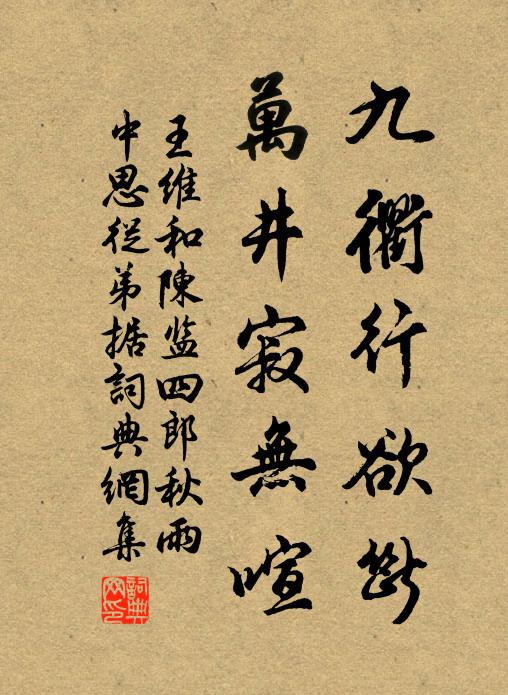 九衢行欲断
萬井寂無喧
王維和陳监四郎秋雨
中思從弟据詞典網集
詞典网印